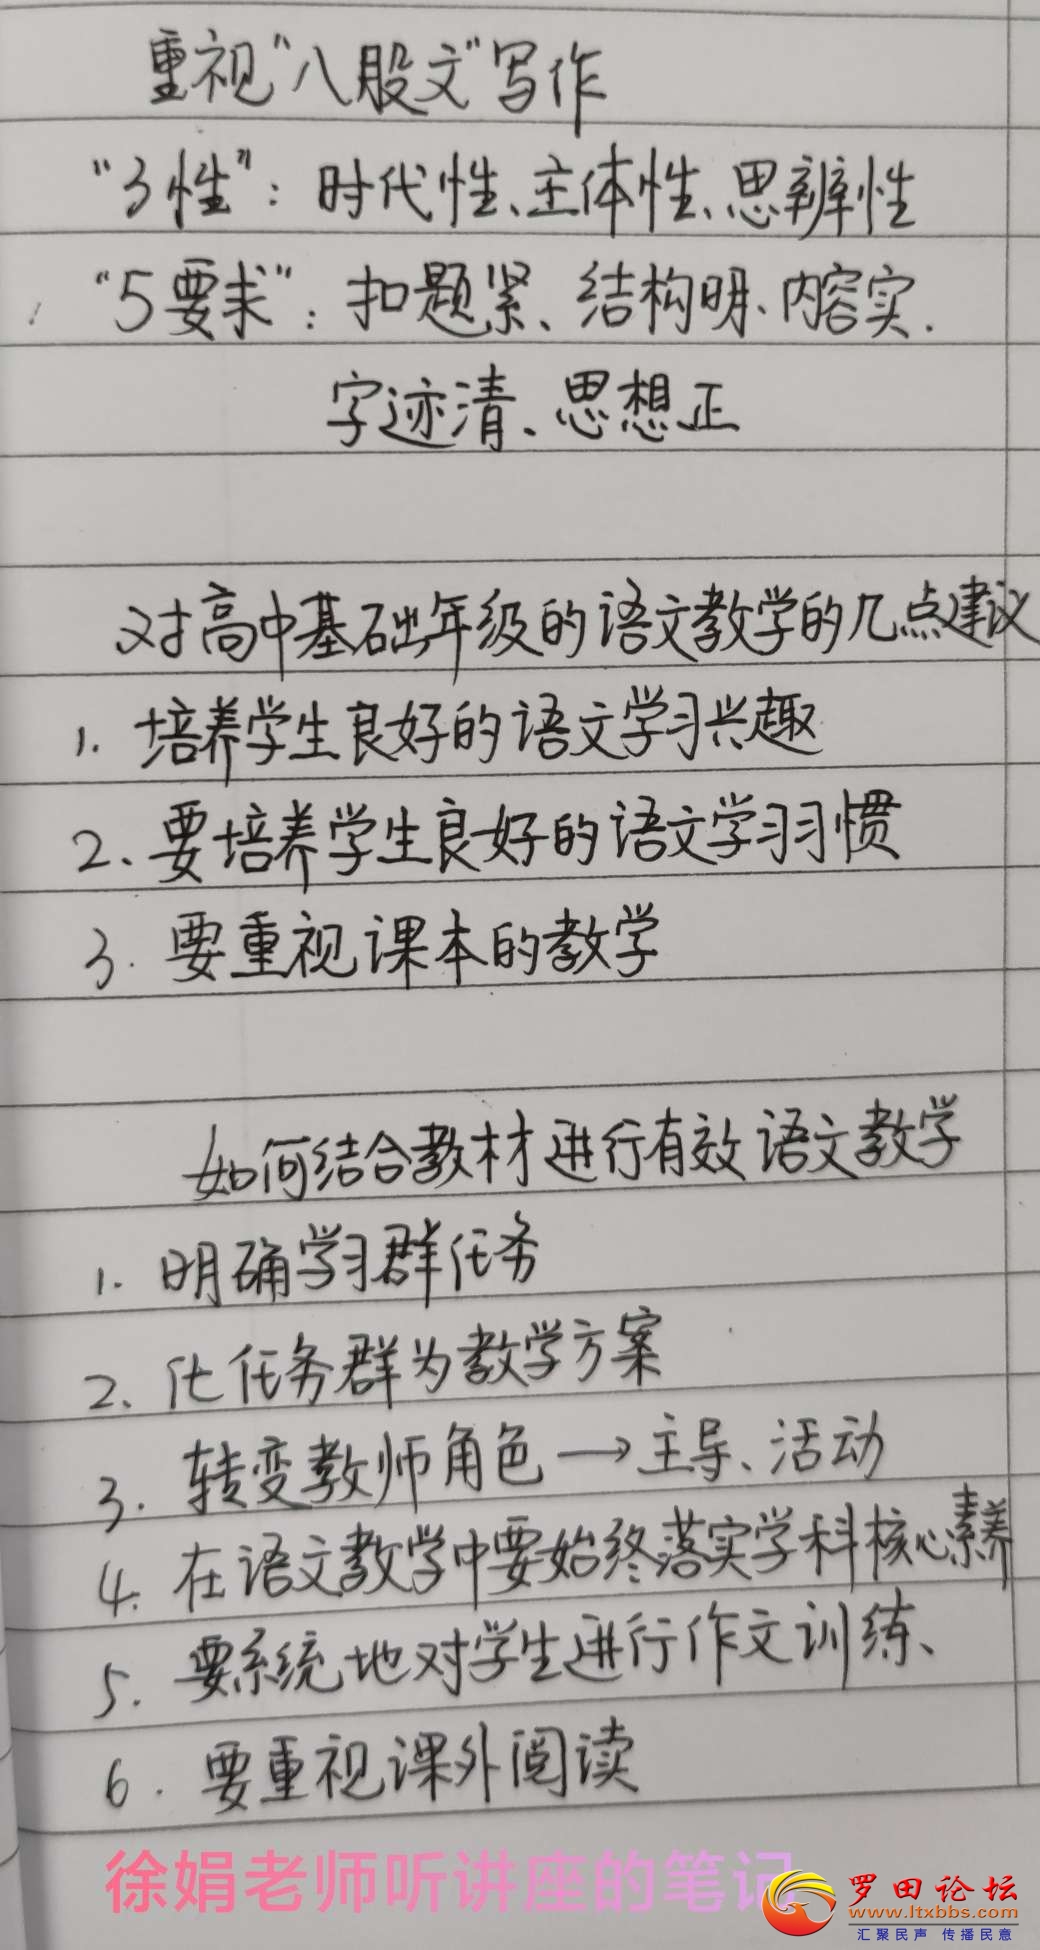 重视“八股文”写作
“3性”：时代性、主体性、思辨性
“5要求”：扣题紧、结构明、内容实.
字迹清、思想正
对高中基础年级的语文教学的几点建议
1. 培养学生良好的语文学习兴趣
2、要培养学生良好的语文学习习惯
3. 要重视课本的教学
如何结合教材进行有效语文教学
1. 明确学习群任务
2、化任务群为教学方案
3. 转变教师角色→主导、活动
4. 在语文教学中要始终落实学科核心素养
5. 要系统地对学生进行作文训练、
6. 要重视课外阅读
徐娟老师听讲座的笔记
罗田论坛
www.ltxbbs.com
汇聚民声 传播民意